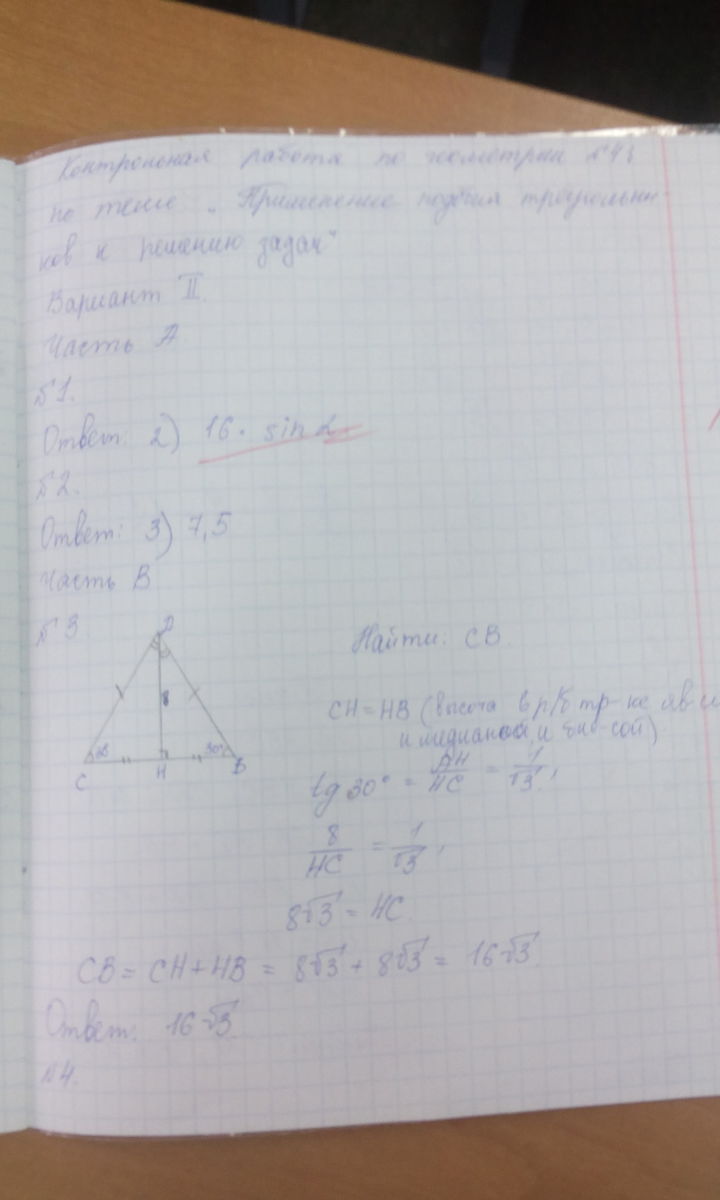 Контрольная работа по геометрии №4
по теме „Применение подобия треугольни-
ков к решению задач"
Вариант II.
Часть A
№1.
Ответ: 2) 16 · sin α
№2.
Ответ: 3) 7,5
Часть B
№3.
D
8
α
30°
C
H
B
Найти: CB.
CH = HB (высота в р/б тр-ке яв
и медианой, и бис-сой)
tg 30° = DH/HC = 1/√3,
8/HC = 1/√3,
8√3 = HC.
CB = CH + HB = 8√3 + 8√3 = 16√3
Ответ: 16√3.
№4.